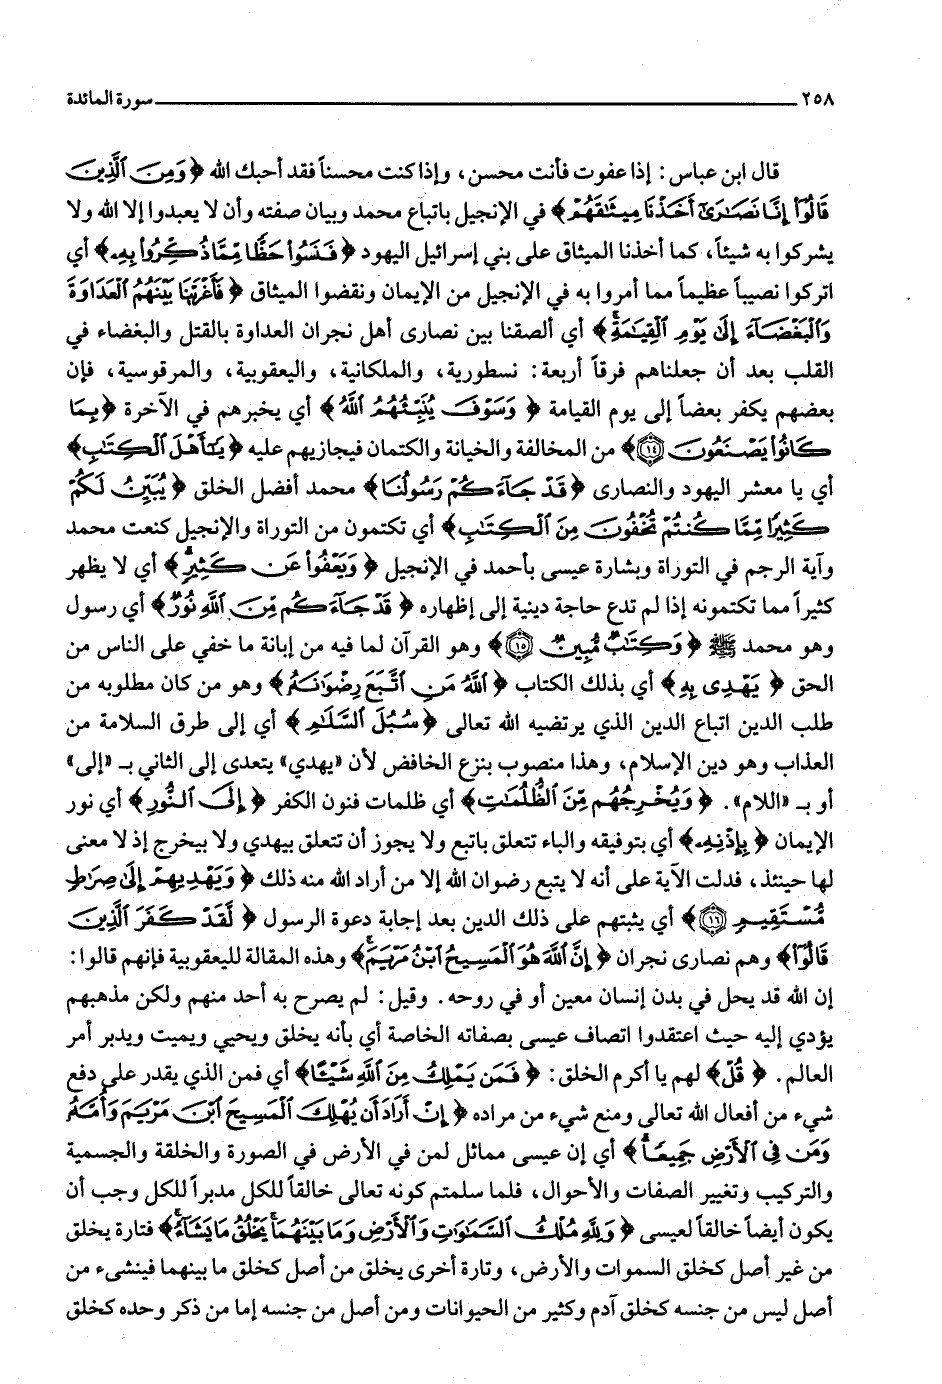 ٢٥٨ سورة المائدة
قال ابن عباس: إذا عفوت فأنت محسن، وإذا كنت محسناً فقد أحبك الله ﴿وَمِنَ ٱلَّذِينَ
قَالُوٓا۟ إِنَّا نَصَـٰرَىٰٓ أَخَذْنَا مِيثَـٰقَهُمْ﴾ في الإنجيل باتباع محمد وبيان صفته وأن لا يعبدوا إلا الله ولا
يشركوا به شيئاً، كما أخذنا الميثاق على بني إسرائيل اليهود ﴿فَنَسُوا۟ حَظًّا مِّمَّا ذُكِّرُوا۟ بِهِۦ﴾ أي
اتركوا نصيباً عظيماً مما أمروا به في الإنجيل من الإيمان ونقضوا الميثاق ﴿فَأَغْرَيْنَا بَيْنَهُمُ ٱلْعَدَاوَةَ
وَٱلْبَغْضَآءَ إِلَىٰ يَوْمِ ٱلْقِيَـٰمَةِ﴾ أي ألصقنا بين نصارى أهل نجران العداوة بالقتل والبغضاء في
القلب بعد أن جعلناهم فرقاً أربعة: نسطورية، والملكانية، واليعقوبية، والمرقوسية، فإن
بعضهم يكفر بعضاً إلى يوم القيامة ﴿وَسَوْفَ يُنَبِّئُهُمُ ٱللَّهُ﴾ أي يخبرهم في الآخرة ﴿بِمَا
كَانُوا۟ يَصْنَعُونَ ١٤﴾ من المخالفة والخيانة والكتمان فيجازيهم عليه ﴿يَـٰٓأَهْلَ ٱلْكِتَـٰبِ﴾
أي يا معشر اليهود والنصارى ﴿قَدْ جَآءَكُمْ رَسُولُنَا﴾ محمد أفضل الخلق ﴿يُبَيِّنُ لَكُمْ
كَثِيرًا مِّمَّا كُنتُمْ تُخْفُونَ مِنَ ٱلْكِتَـٰبِ﴾ أي تكتمون من التوراة والإنجيل كنعت محمد
وآية الرجم في التوراة وبشارة عيسى بأحمد في الإنجيل ﴿وَيَعْفُوا۟ عَن كَثِيرٍ﴾ أي لا يظهر
كثيراً مما تكتمونه إذا لم تدع حاجة دينية إلى إظهاره ﴿قَدْ جَآءَكُم مِّنَ ٱللَّهِ نُورٌ﴾ أي رسول
وهو محمد ﷺ ﴿وَكِتَـٰبٌ مُّبِينٌ ١٥﴾ وهو القرآن لما فيه من إبانة ما خفي على الناس من
الحق ﴿يَهْدِى بِهِ﴾ أي بذلك الكتاب ﴿ٱللَّهُ مَنِ ٱتَّبَعَ رِضْوَٰنَهُۥ﴾ وهو من كان مطلوبه من
طلب الدين اتباع الدين الذي يرتضيه الله تعالى ﴿سُبُلَ ٱلسَّلَـٰمِ﴾ أي إلى طرق السلامة من
العذاب وهو دين الإسلام، وهذا منصوب بنزع الخافض لأن «يهدي» يتعدى إلى الثاني بـ «إلى»
أو بـ «اللام». ﴿وَيُخْرِجُهُم مِّنَ ٱلظُّلُمَـٰتِ﴾ أي ظلمات فنون الكفر ﴿إِلَى ٱلنُّورِ﴾ أي نور
الإيمان ﴿بِإِذْنِهِۦ﴾ أي بتوفيقه والباء تتعلق باتبع ولا يجوز أن تتعلق بيهدي ولا بيخرج إذ لا معنى
لها حينئذ، فدلت الآية على أنه لا يتبع رضوان الله إلا من أراد الله منه ذلك ﴿وَيَهْدِيهِمْ إِلَىٰ صِرَٰطٍ
مُّسْتَقِيمٍ ١٦﴾ أي يثبتهم على ذلك الدين بعد إجابة دعوة الرسول ﴿لَّقَدْ كَفَرَ ٱلَّذِينَ
قَالُوٓا۟﴾ وهم نصارى نجران ﴿إِنَّ ٱللَّهَ هُوَ ٱلْمَسِيحُ ٱبْنُ مَرْيَمَ﴾ وهذه المقالة لليعقوبية فإنهم قالوا:
إن الله قد يحل في بدن إنسان معين أو في روحه. وقيل: لم يصرح به أحد منهم ولكن مذهبهم
يؤدي إليه حيث اعتقدوا اتصاف عيسى بصفاته الخاصة أي بأنه يخلق ويحيي ويميت ويدبر أمر
العالم. ﴿قُلْ﴾ لهم يا أكرم الخلق: ﴿فَمَن يَمْلِكُ مِنَ ٱللَّهِ شَيْـًٔا﴾ أي فمن الذي يقدر على دفع
شيء من أفعال الله تعالى ومنع شيء من مراده ﴿إِنْ أَرَادَ أَن يُهْلِكَ ٱلْمَسِيحَ ٱبْنَ مَرْيَمَ وَأُمَّهُۥ
وَمَن فِى ٱلْأَرْضِ جَمِيعًا﴾ أي إن عيسى مماثل لمن في الأرض في الصورة والخلقة والجسمية
والتركيب وتغيير الصفات والأحوال، فلما سلمتم كونه تعالى خالقاً للكل مدبراً للكل وجب أن
يكون أيضاً خالقاً لعيسى ﴿وَلِلَّهِ مُلْكُ ٱلسَّمَـٰوَٰتِ وَٱلْأَرْضِ وَمَا بَيْنَهُمَا يَخْلُقُ مَا يَشَآءُ﴾ فتارة يخلق
من غير أصل كخلق السموات والأرض، وتارة أخرى يخلق من أصل كخلق ما بينهما فينشىء من
أصل ليس من جنسه كخلق آدم وكثير من الحيوانات ومن أصل من جنسه إما من ذكر وحده كخلق